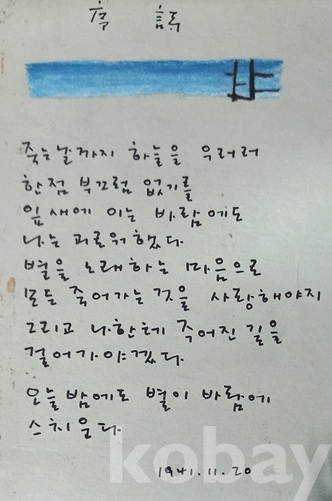 序 詩
죽는날까지 하늘을 우러러
한점 부끄럼 없기를
잎새에 이는 바람에도
나는 괴로워했다.
별을 노래하는 마음으로
모든 죽어가는 것을 사랑해야지
그리고 나한테 주어진 길을
걸어가야겠다.
오늘 밤에도 별이 바람에
스치운다.
1941.11.20
kobay